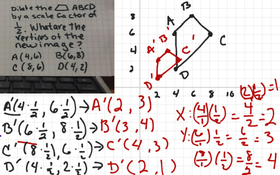 Dilate the ▱ ABCD
by a scale factor of
1/2. What are the
vertices of the
new image?
A(4,6) B(6,8)
C(8,6) D(4,2)
A'(4·1/2, 6·1/2) → A'(2, 3)
B'(6·1/2, 8·1/2) → B'(3, 4)
C'(8·1/2, 6·1/2) → C'(4, 3)
D'(4·1/2, 2·1/2) → D'(2, 1)
8
6
4
2
A
B
C
D
A'
B'
C'
D'
2 4 6 8
X: (4/1)(1/2) = 4/2 = 2
Y: (6/1)(1/2) = 6/2 = 3
(1/2) = 8/2 = 4